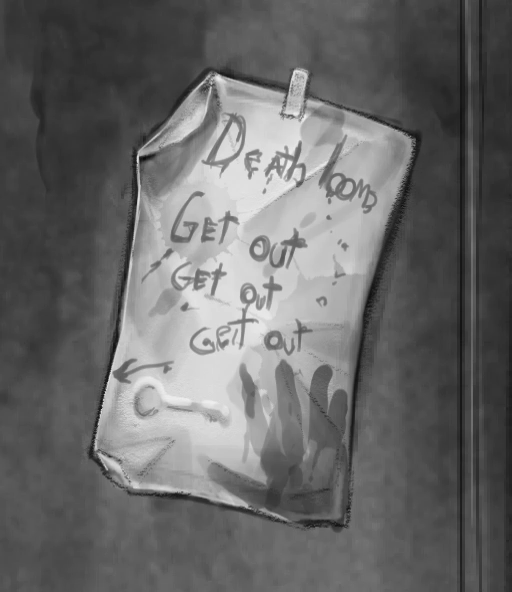 Death looms
Get out
Get out
Get out